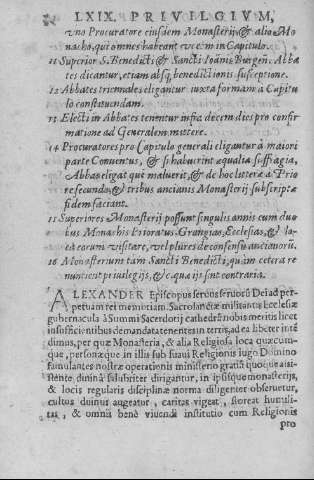 LXIX. PRIVILGIVM,
vno Procuratore eiusdem Monasterij, & alio Mo
nacho, qui omnes habeant vocem in Capitulo.
11 Superior S. Benedicti, & Sancti Ioānis Burgen. Abba
tes dicantur, etiam absq; benedictionis susceptione.
12 Abbates triennales eligantur iuxta formam à Capitu
lo constituendam.
13 Electi in Abbates tenentur infra decem dies pro confir
matione ad Generalem mittere.
14 Procuratores pro Capitulo generali eligantur à maiori
parte Conuentus, & si habuerint æqualia suffragia,
Abbas eligat qui maluerit, & de hoc litteræ à Prio
re secundo, & tribus ancianis Monasterij subscriptæ
fidem faciant.
15 Superiores Monasterij possunt singulis annis cum duo
bus Monachis Prioratus, Grangias, Ecclesias, & lo
ca eorum visitare, vel plures de consensu ancianorū.
16 Monasterium tam Sancti Benedicti, quàm cetera re
nuncient priuilegijs, & c. quæ ijs sint contraria.
ALEXANDER Episcopus seruus seruorū Dei ad per
petuam rei memoriam Sacrosanctæ militantis Ecclesiæ
gubernacula à Summi Sacerdotij cathedra nobis meritis licet
insufficientibus demandata tenentes in terris, ad ea libēter inté
dimus, per quæ Monasteria, & alia Religiosa loca quæcum-
que, personæque in illis sub suaui Religionis iugo Domino
famulantes nostræ operationis ministerio gratiā quoque assi-
stente diuinā salubriter dirigantur, in ipsisque monasterijs,
& locis regularis disciplinæ norma diligenter obseruetur,
cultus diuinus augeatur, caritas vigeat, floreat humili-
tas, & omnis benè viuendi institutio cum Religionis
pro